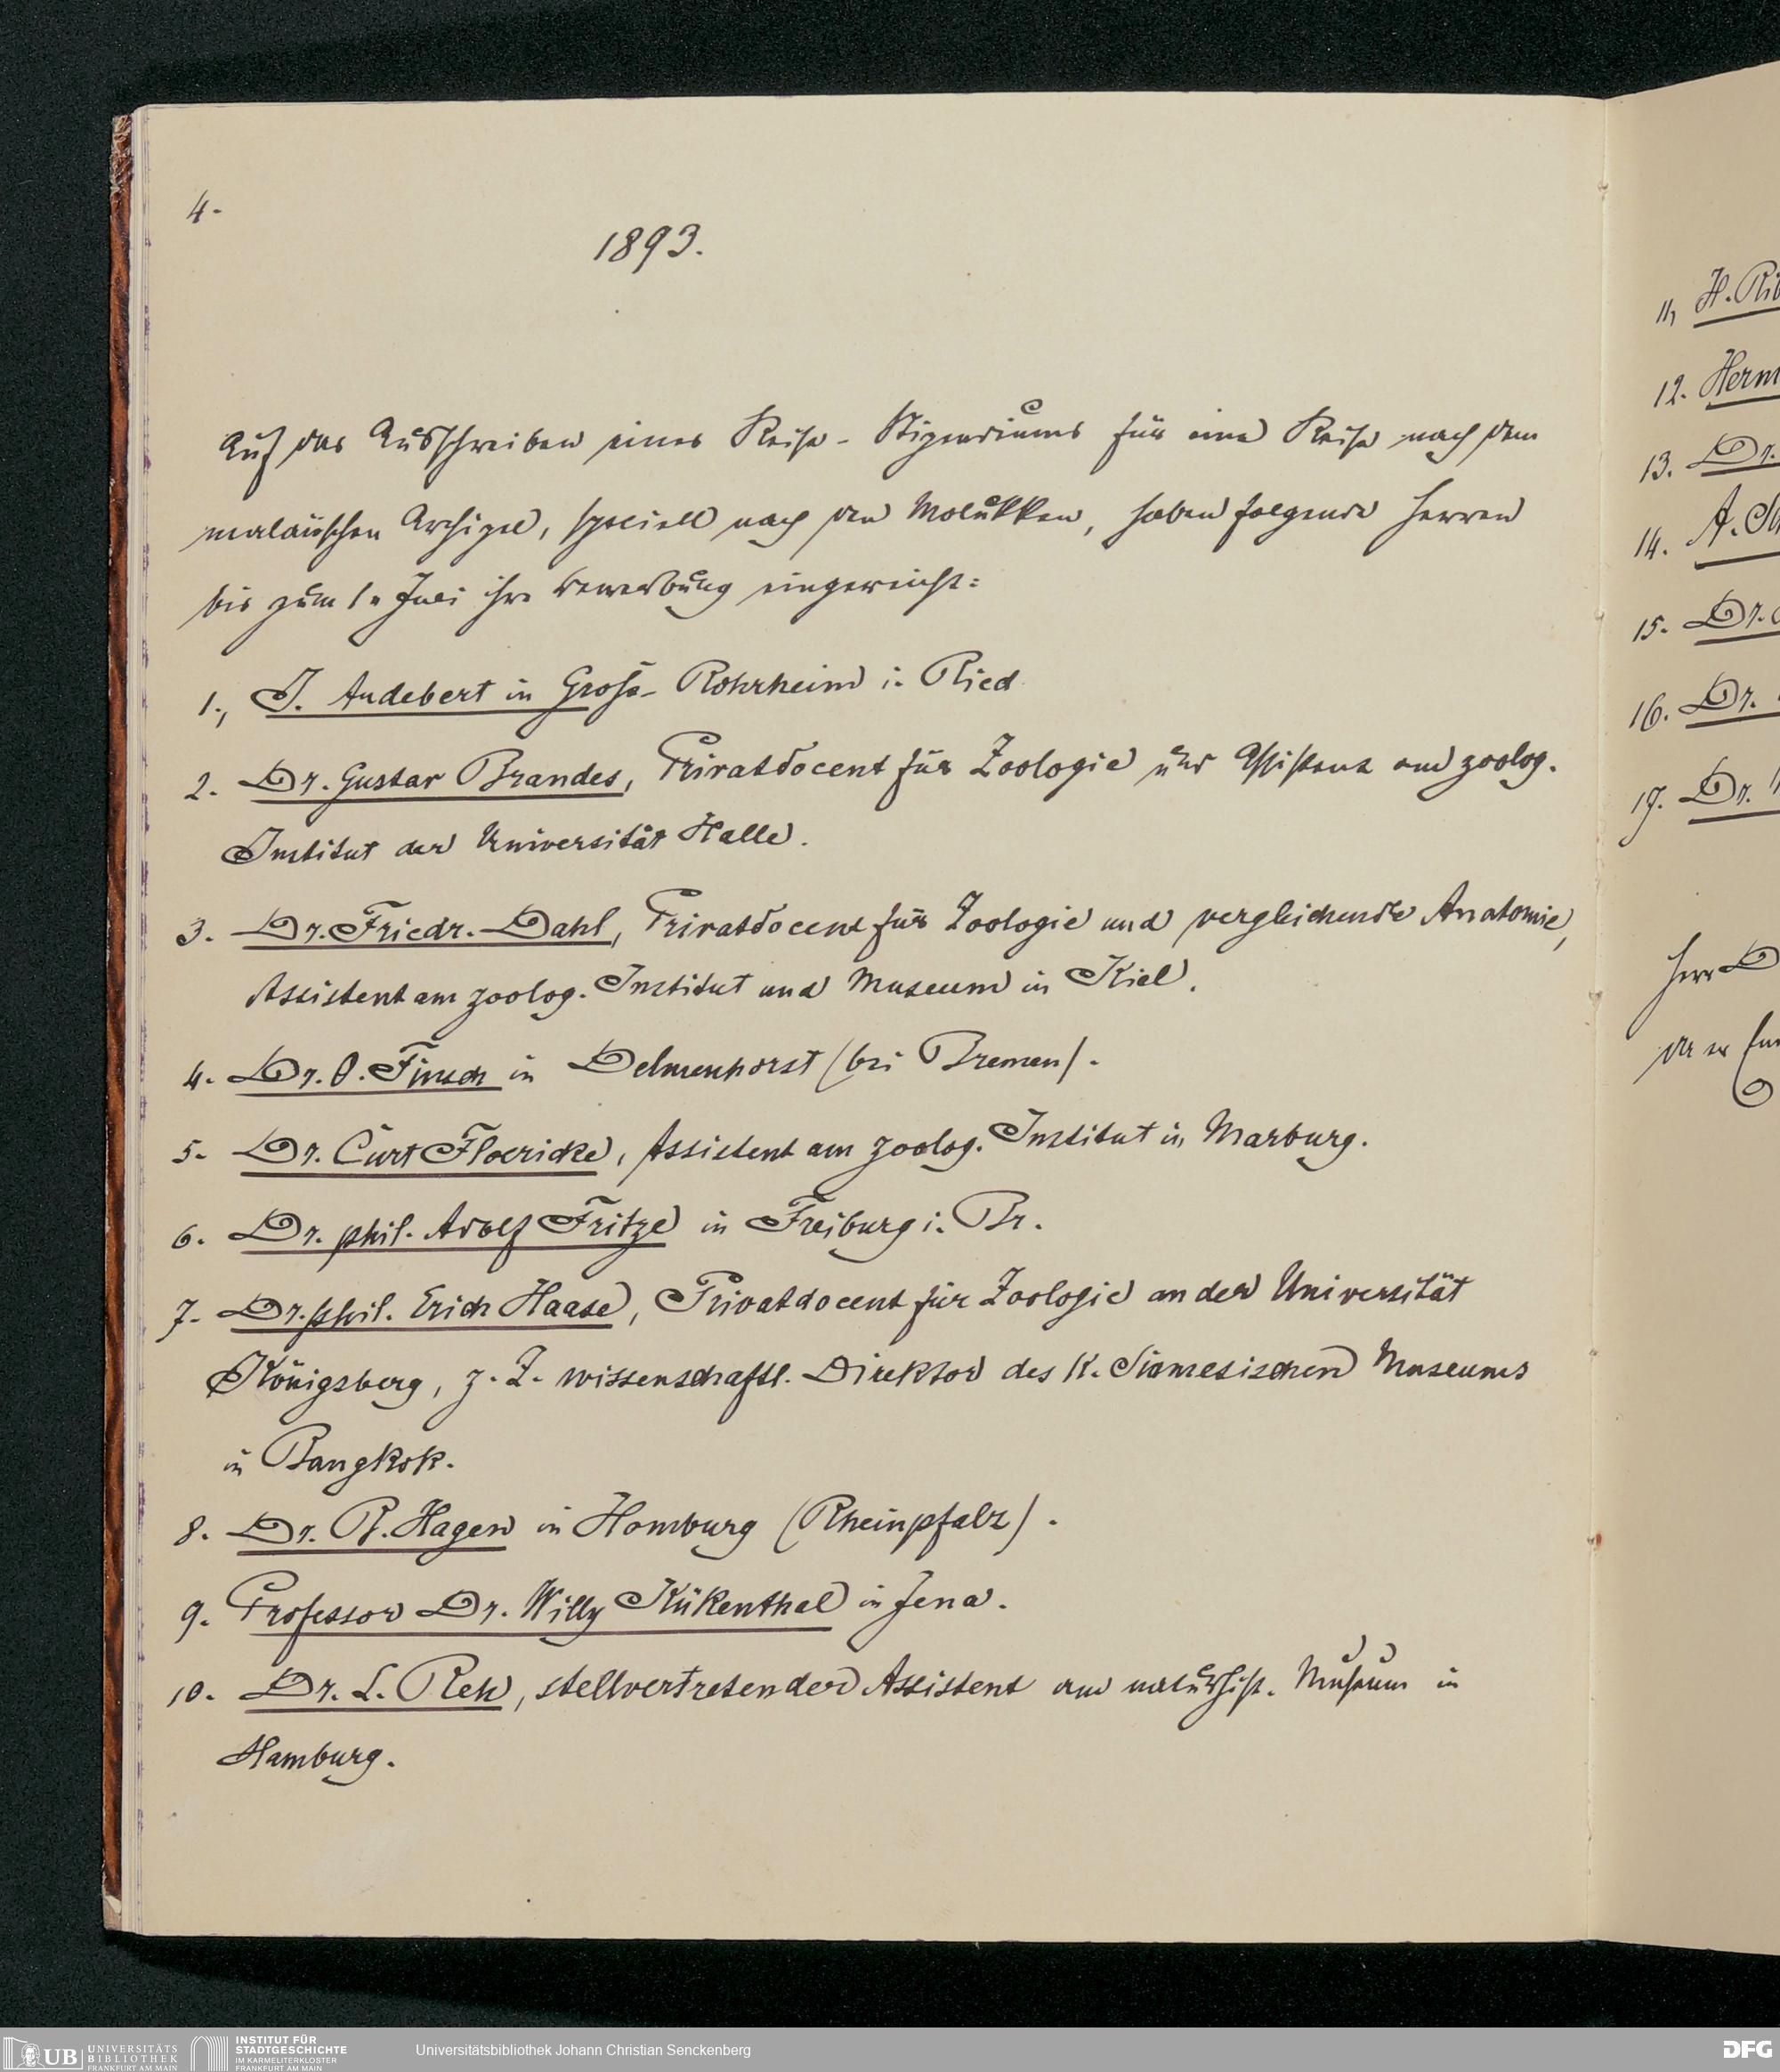 4.
1893.
Auf das Ausschreiben eines Reise-Stipendiums für eine Reise nach dem
malaiischen Archipel, speciell nach den Molukken, haben folgende Herren
bis zum 1. Juli ihre Bewerbung eingereicht:
1., J. Audebert in Gross-Rohrheim i. Ried
2. Dr. Gustav Brandes, Privatdocent für Zoologie und Assistent am zoolog.
Institut der Universität Halle.
3. Dr. Friedr. Dahl, Privatdocent für Zoologie und vergleichende Anatomie,
Assistent am zoolog. Institut und Museum in Kiel.
4. Dr. O. Finsch in Delmenhorst (bei Bremen).
5. Dr. Curt Floericke, Assistent am zoolog. Institut in Marburg.
6. Dr. phil. Adolf Fritze in Freiburg i. Br.
7. Dr. phil. Erich Haase, Privatdocent für Zoologie an der Universität
Königsberg, z. Z. wissenschaftl. Direktor des K. Siamesischen Museums
in Bangkok.
8. Dr. B. Hagen in Homburg (Rheinpfalz).
9. Professor Dr. Willy Kükenthal in Jena.
10. Dr. L. Reh, stellvertretender Assistent am naturhist. Museum in
Hamburg.
11,
12.
13. Dr.
14.
15. Dr.
16. Dr.
17. Dr.
Herr
UB UNIVERSITÄTS
BIBLIOTHEK
FRANKFURT AM MAIN
INSTITUT FÜR
STADTGESCHICHTE
IM KARMELITERKLOSTER
FRANKFURT AM MAIN
Universitätsbibliothek Johann Christian Senckenberg
DFG